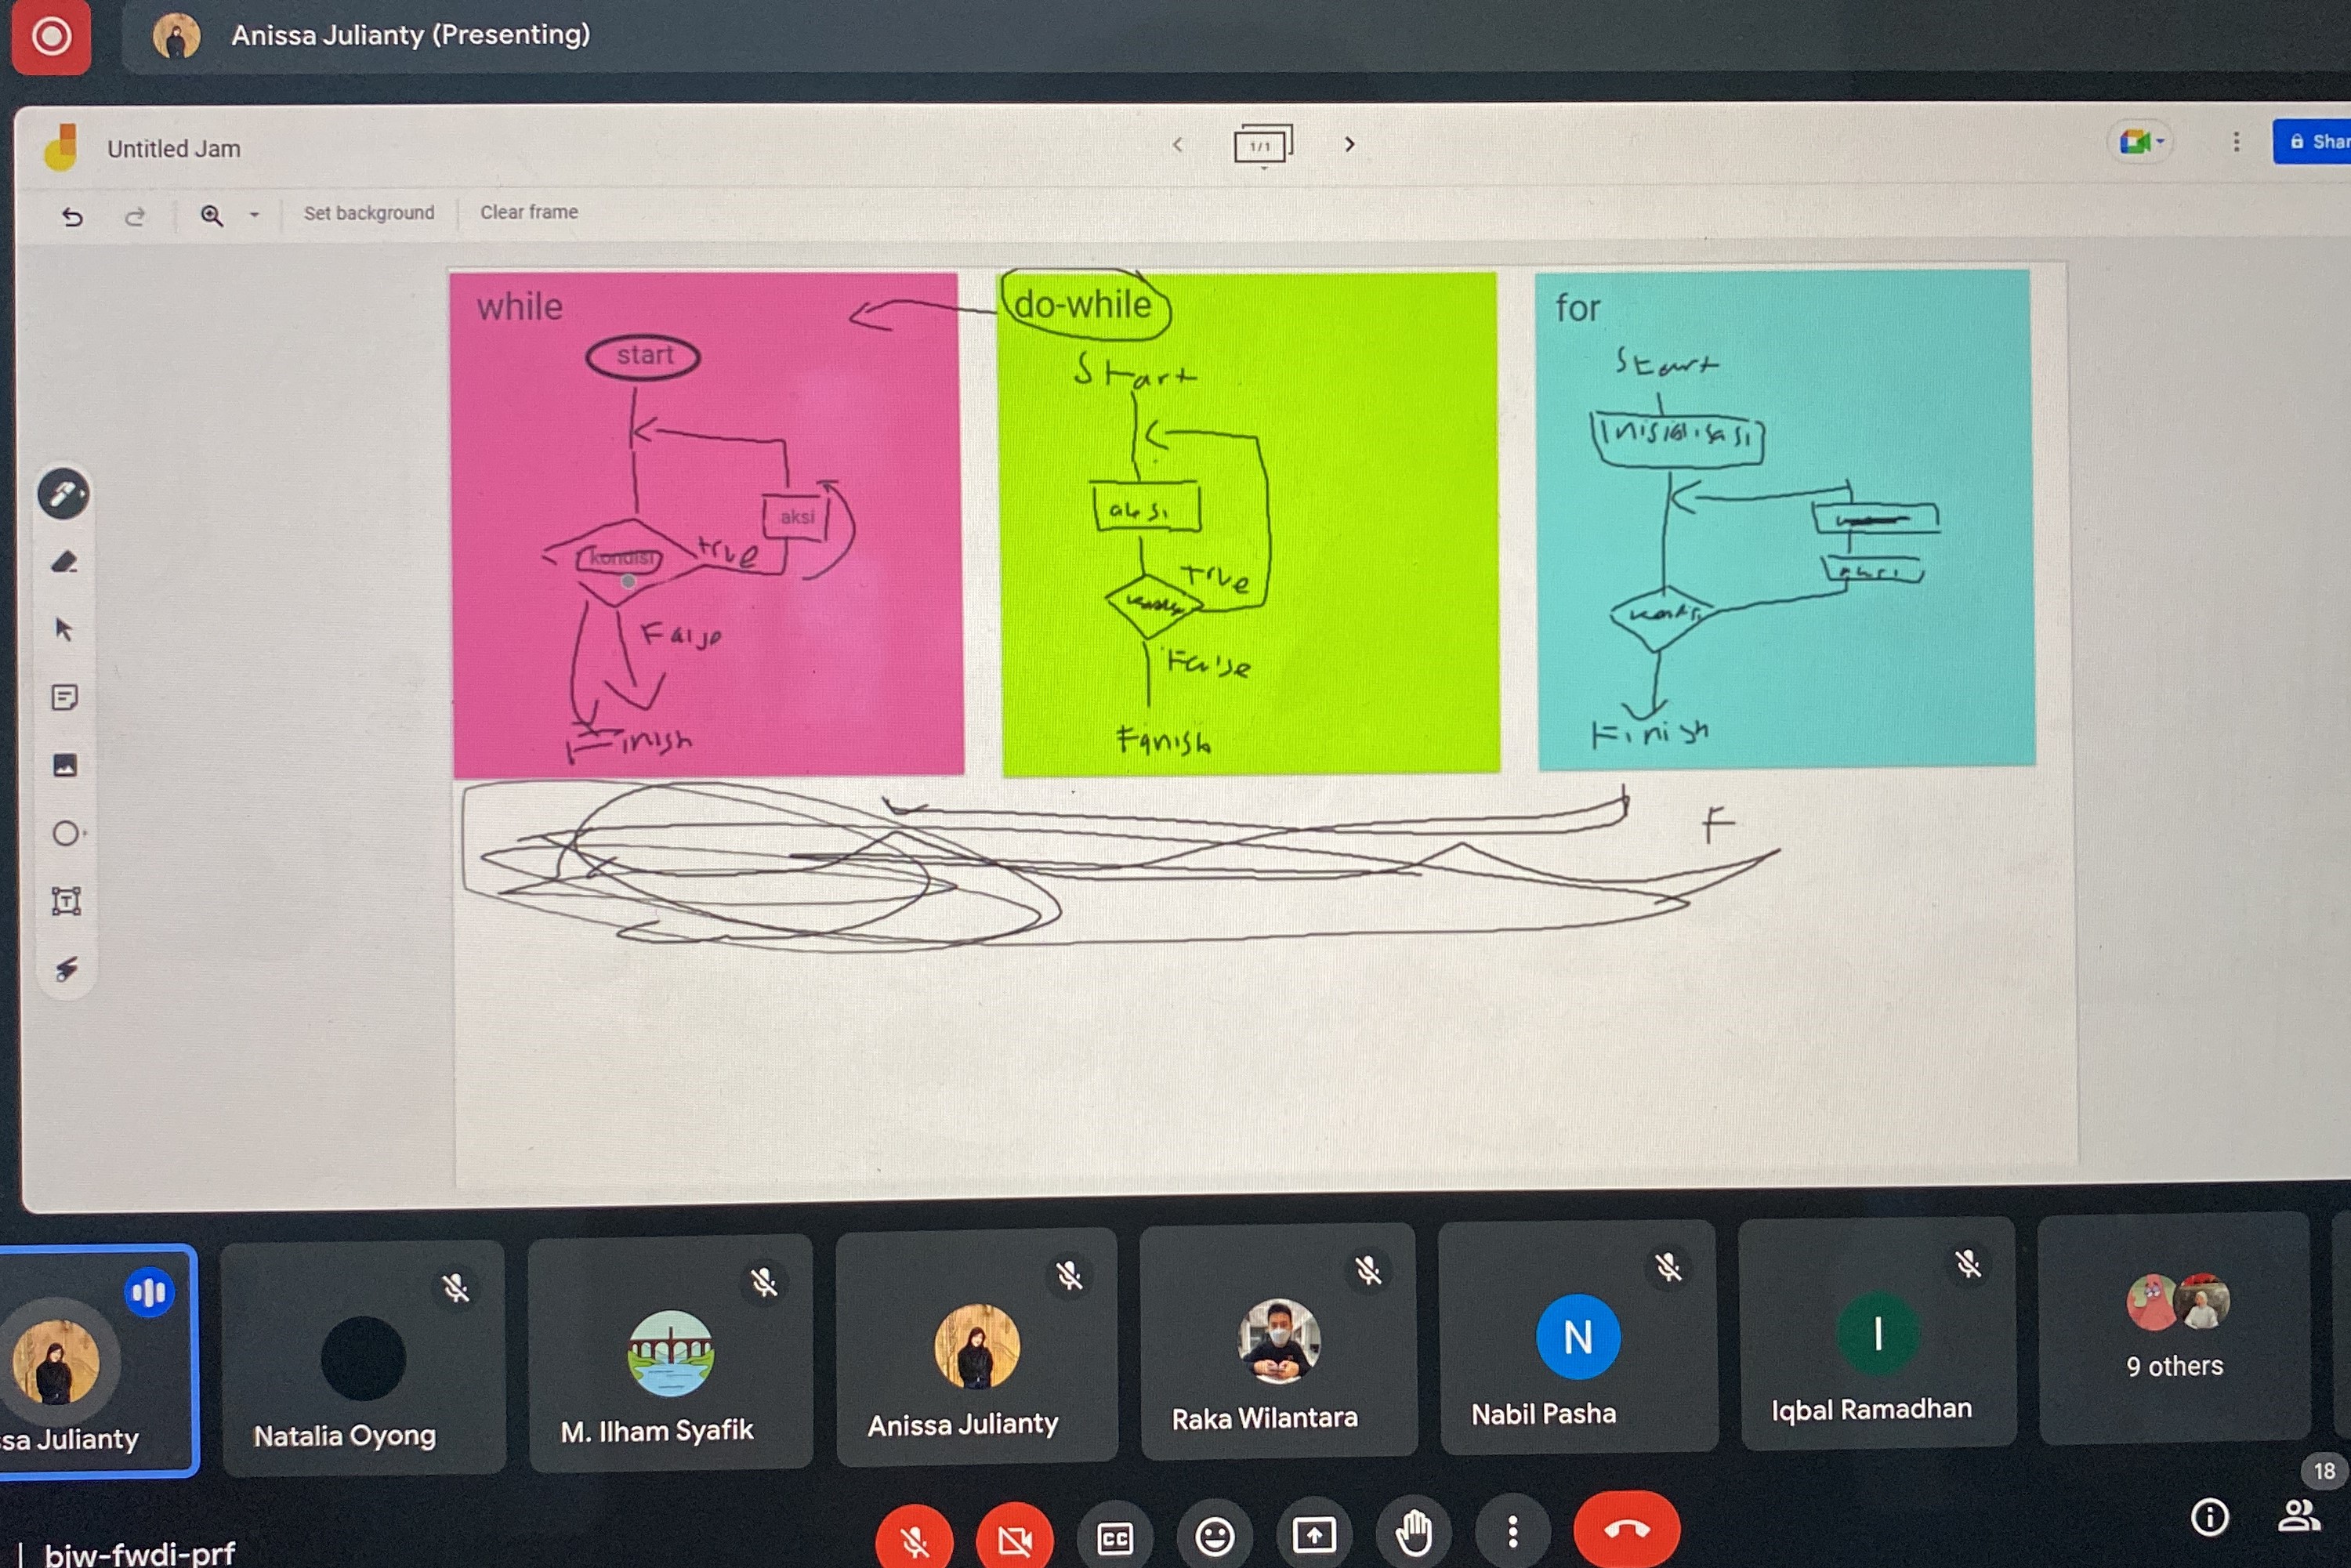 Anissa Julianty (Presenting)
Untitled Jam
1/1
Shar
Set background
Clear frame
while
start
aksi
kondisi
true
False
Finish
do-while
Start
aksi
True
False
Finish
for
Start
Inisialisasi
aksi
kondisi
Finish
F
ssa Julianty
Natalia Oyong
M. Ilham Syafik
Anissa Julianty
Raka Wilantara
N
Nabil Pasha
I
Iqbal Ramadhan
9 others
18
CC
biw-fwdi-prf